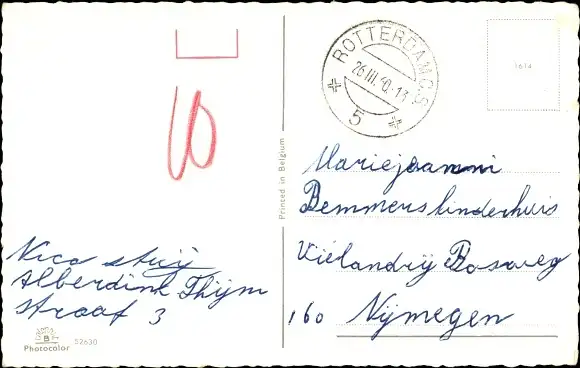 ROTTERDAM C.S
26.III.60.13
5
1614
10
Printed in Belgium
Mariejeanni
Bemmers kinderhuis
Viëlandrÿ Bosweg
160 Nÿmegen
Nico Stuÿ
Alberdink Thÿm
straat 3
B
Photocolor 52630